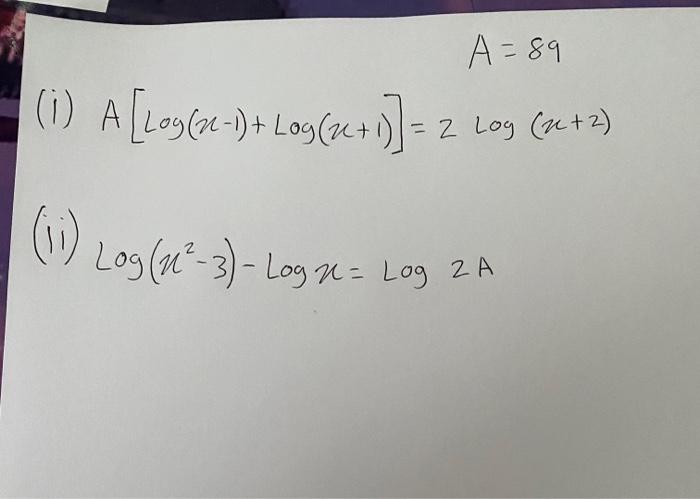 A = 89
(i) A[Log(x-1)+Log(x+1)] = 2 Log (x+2)
(ii) Log(x²-3)-Log x = Log 2A